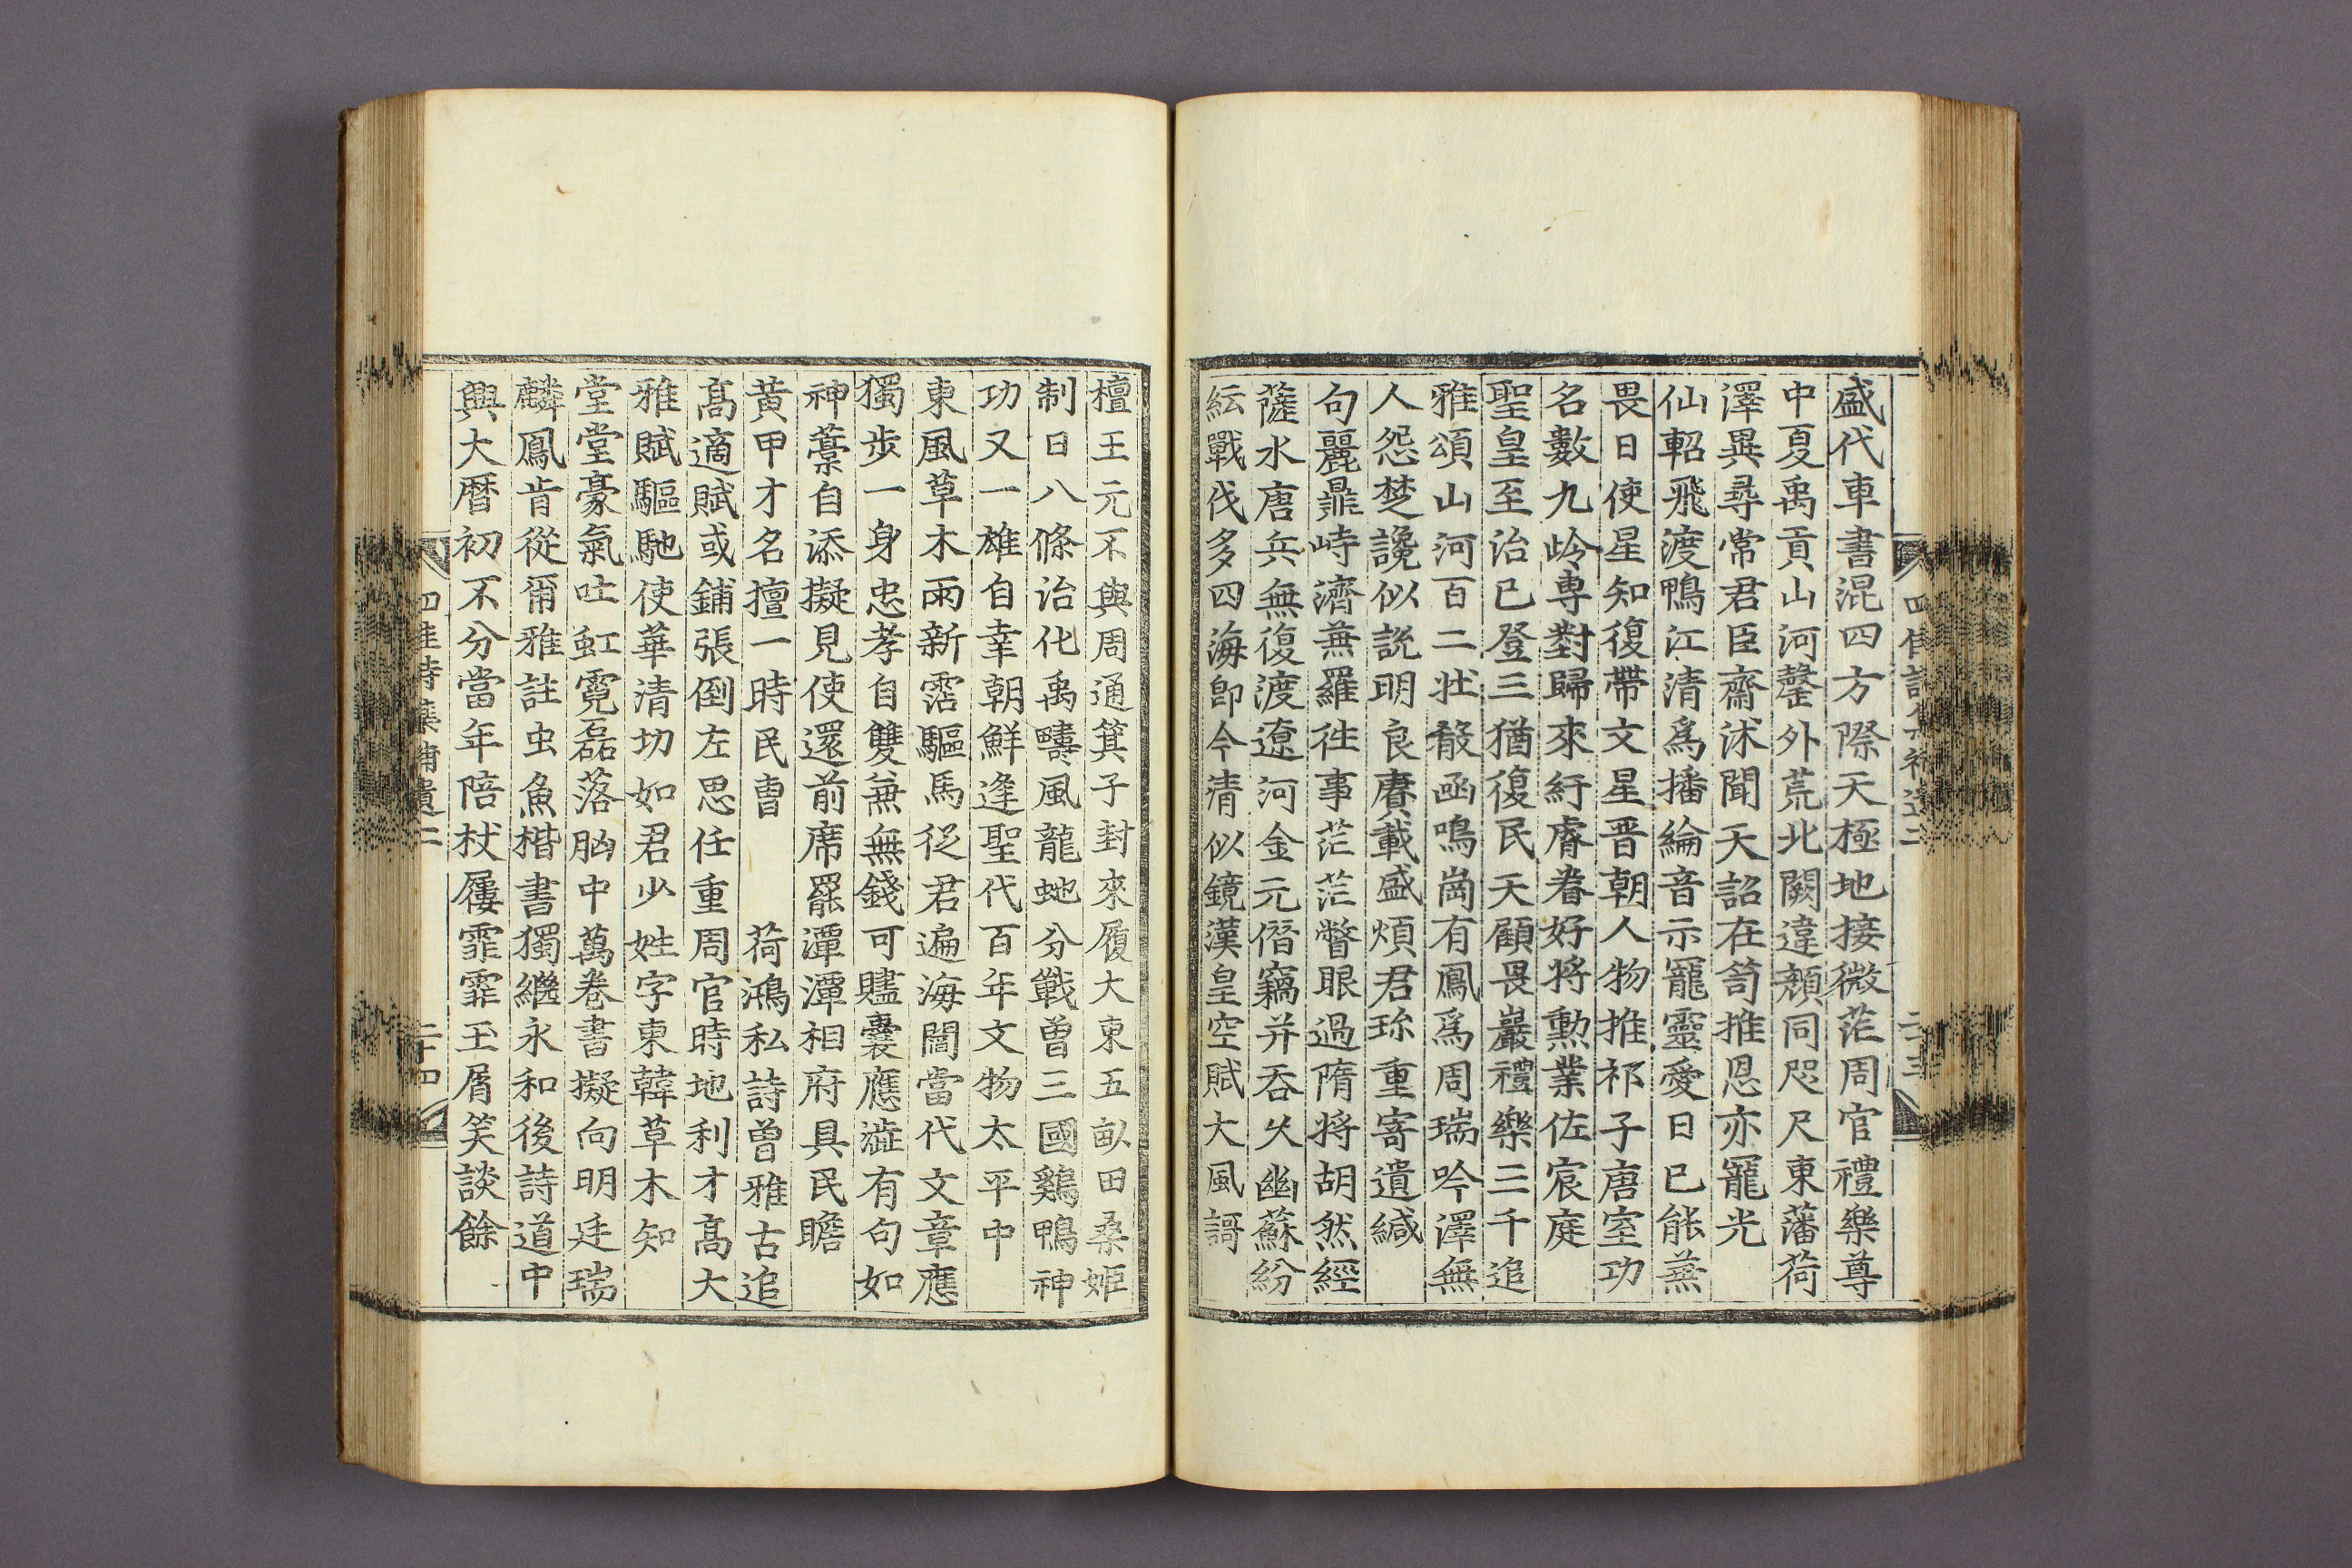 盛代車書混四方際天極地接微茫周官禮樂尊
中夏禹貢山河罄外荒北闕違顔同咫尺東藩荷
澤異尋常君臣齋沐聞天詔在笥推恩亦寵光
仙軺飛渡鴨江清爲播綸音示寵靈愛日已能蒸
畏日使星知復帶文星晋朝人物推祁子唐室功
名數九岭專對歸來紆睿眷好將勲業佐宸庭
聖皇至治已登三猶復民天顧畏巖禮樂三千追
雅頌山河百二壯殽函鳴崗有鳳爲周瑞吟澤無
人怨楚讒似説明良賡載盛煩君珎重寄遺緘
句麗鼎峙濟兼羅徃事茫茫瞥眼過隋將胡然經
薩水唐兵無復渡遼河金元僭竊并吞久幽蘇紛
紜戰伐多四海卽今清似鏡漢皇空賦大風謌
四佳詩集補遺二
二十三
檀王元不與周通箕子封來履大東五畝田桑姬
制日八條治化禹疇風龍虵分戰曽三國鷄鴨神
功又一雄自幸朝鮮逢聖代百年文物太平中
東風草木雨新霑驅馬從君遍海閻當代文章應
獨步一身忠孝自雙兼無錢可贐囊應澁有句如
神藁自添擬見使還前席罷潭潭相府具民瞻
黃甲才名擅一時民曹 荷鴻私詩曽雅古追
髙適賦或鋪張倒左思任重周官時地利才髙大
雅賦驅馳使華清切如君少姓字東韓草木知
堂堂豪氣吐虹霓磊落胷中萬卷書擬向明廷瑞
麟鳳肯從爾雅註虫魚楷書獨繼永和後詩道中
興大曆初不分當年陪杖屨霏霏玉屑笑談餘
四佳詩集補遺二
二十四